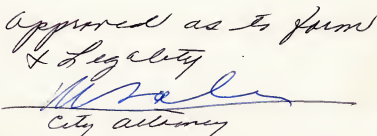 approved as to form
& Legality
city attorney